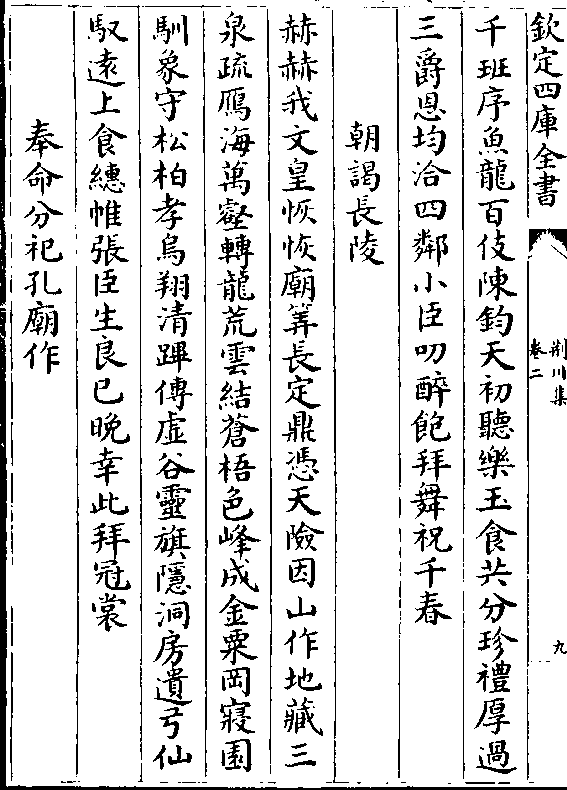 欽定四庫全書
荆川集
卷二
九
千班序魚龍百伎陳鈞天初聽樂玉食共分珍禮厚過
三爵恩均洽四鄰小臣叨醉飽拜舞祝千春
朝謁長陵
赫赫我文皇恢恢廟筭長定鼎憑天險因山作地藏三
泉疏鴈海萬壑轉龍荒雲結蒼梧色峰成金粟岡寢園
馴象守松柏孝烏翔清蹕傳虛谷靈旗隱洞房遺弓仙
馭遠上食繐帷張臣生良已晚幸此拜冠裳
奉命分祀孔廟作